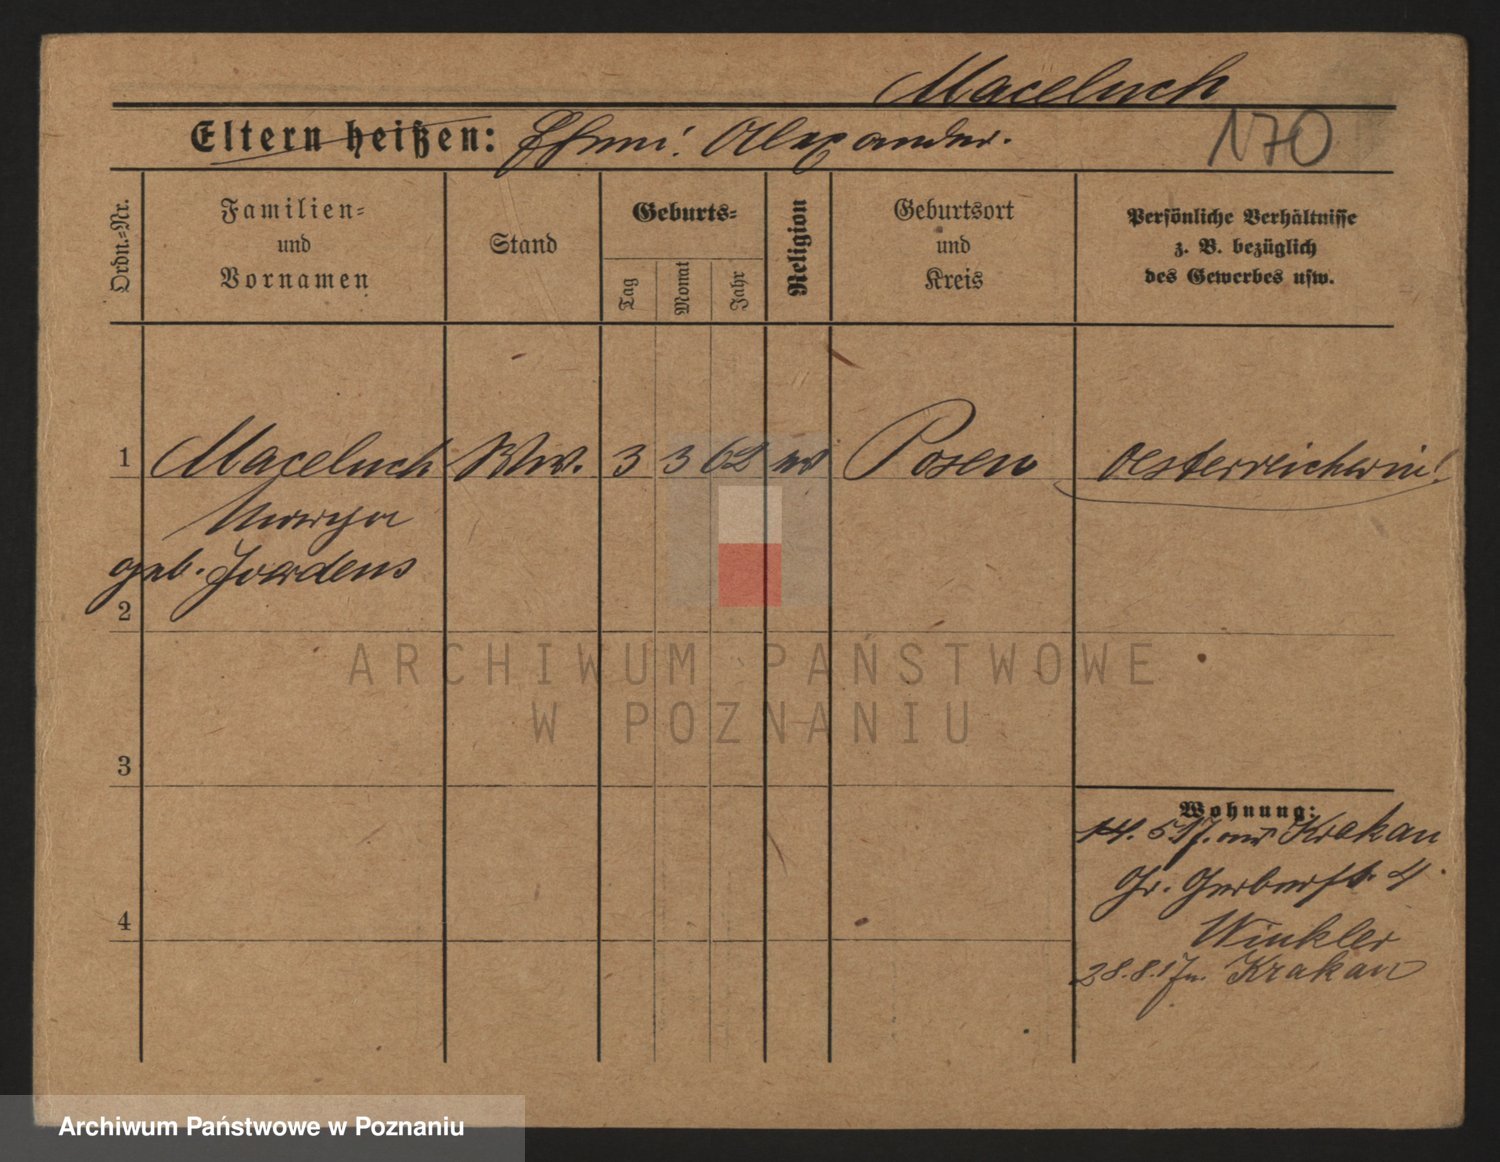 Maceluch
Eltern heißen: Ehem: Alexander.
170
Ordn.-Nr.
Familien-
und
Vornamen
Stand
Geburts-
Tag
Monat
Jahr
Religion
Geburtsort
und
Kreis
Persönliche Verhältnisse
z. B. bezüglich
des Gewerbes usw.
1 Maceluch Ww. 3 3 62 Posen Oesterreicherin!
geb. Jordens
2
3
4
Wohnung:
14. 5. 17. aus Krakau
Gr. Gerberst. 4
Winkler
28.8.17 n. Krakau
ARCHIWUM PAŃSTWOWE
W POZNANIU
Archiwum Państwowe w Poznaniu